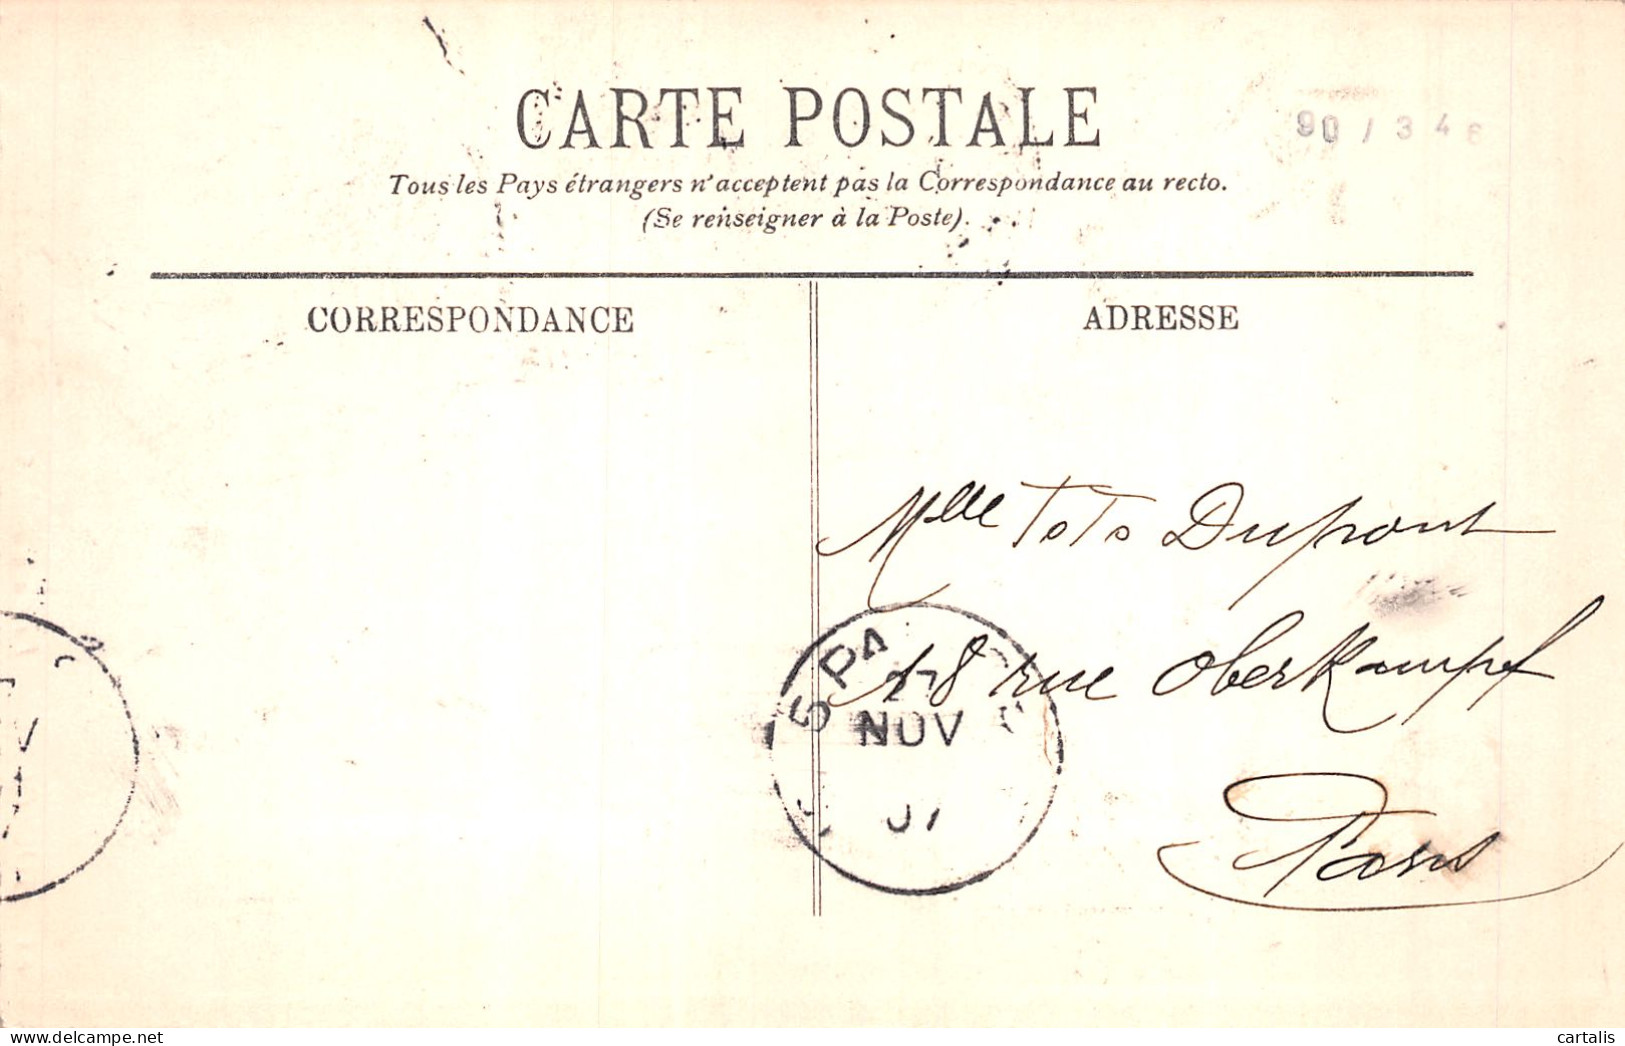 CARTE POSTALE
90 / 3 4 6
Tous les Pays étrangers n'acceptent pas la Correspondance au recto.
(Se renseigner à la Poste).
CORRESPONDANCE
ADRESSE
Mlle ToTo Dupont
18 rue Oberkampf
Paris
NOV
07
delcampe.net
cartalis